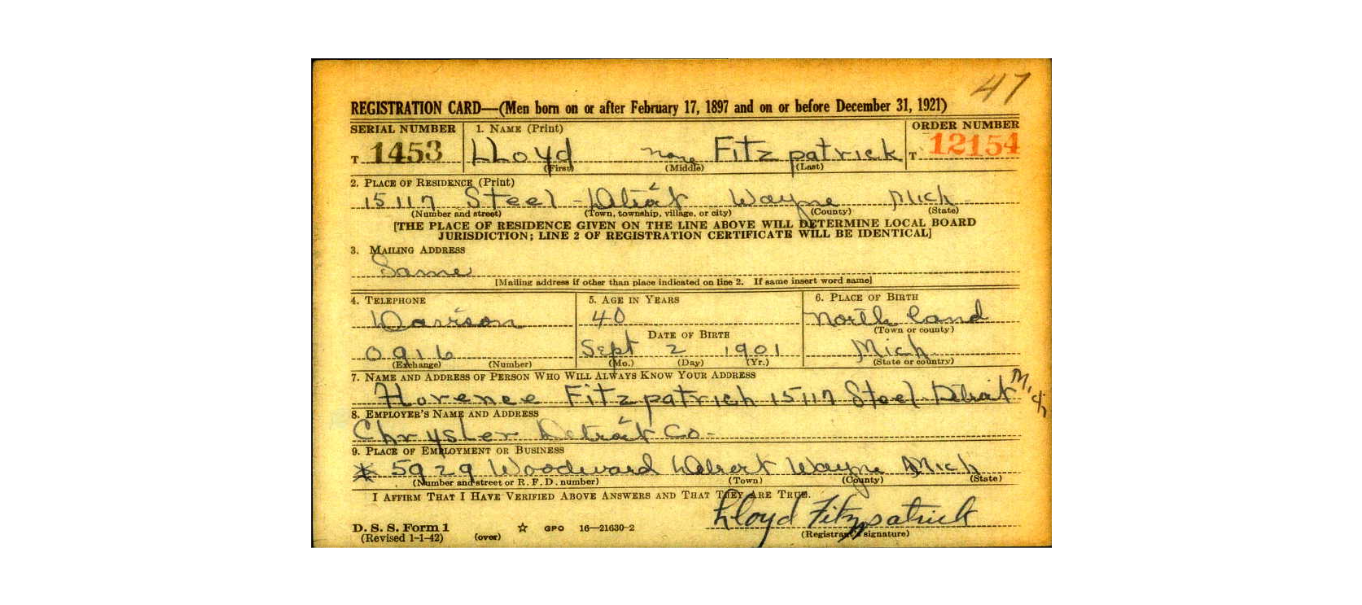 47
REGISTRATION CARD—(Men born on or after February 17, 1897 and on or before December 31, 1921)
SERIAL NUMBER 1. NAME (Print) ORDER NUMBER
T 1453 LLoyd none Fitzpatrick T 12154
(First) (Middle) (Last)
2. PLACE OF RESIDENCE (Print)
15117 Steel - Detroit Wayne Mich
(Number and street) (Town, township, village, or city) (County) (State)
[THE PLACE OF RESIDENCE GIVEN ON THE LINE ABOVE WILL DETERMINE LOCAL BOARD
JURISDICTION; LINE 2 OF REGISTRATION CERTIFICATE WILL BE IDENTICAL]
3. MAILING ADDRESS
Same
[Mailing address if other than place indicated on line 2. If same insert word same]
4. TELEPHONE 5. AGE IN YEARS 6. PLACE OF BIRTH
40 North land
(Town or county)
DATE OF BIRTH
0916 Sept 2 1901 Mich
(Exchange) (Number) (Mo.) (Day) (Yr.) (State or country)
7. NAME AND ADDRESS OF PERSON WHO WILL ALWAYS KNOW YOUR ADDRESS
Florence Fitzpatrich 15117 Steel Detroit Mich
8. EMPLOYER'S NAME AND ADDRESS
Chrysler Detroit Co-
9. PLACE OF EMPLOYMENT OR BUSINESS
5929 Woodward Wayne Mich
(Number and street or R. F. D. number) (Town) (County) (State)
I AFFIRM THAT I HAVE VERIFIED ABOVE ANSWERS AND THAT THEY ARE TRUE.
Lloyd Fitzpatrick
D. S. S. Form 1 ☆ GPO 16—21630-2
(Revised 1-1-42) (over) (Registrant's signature)